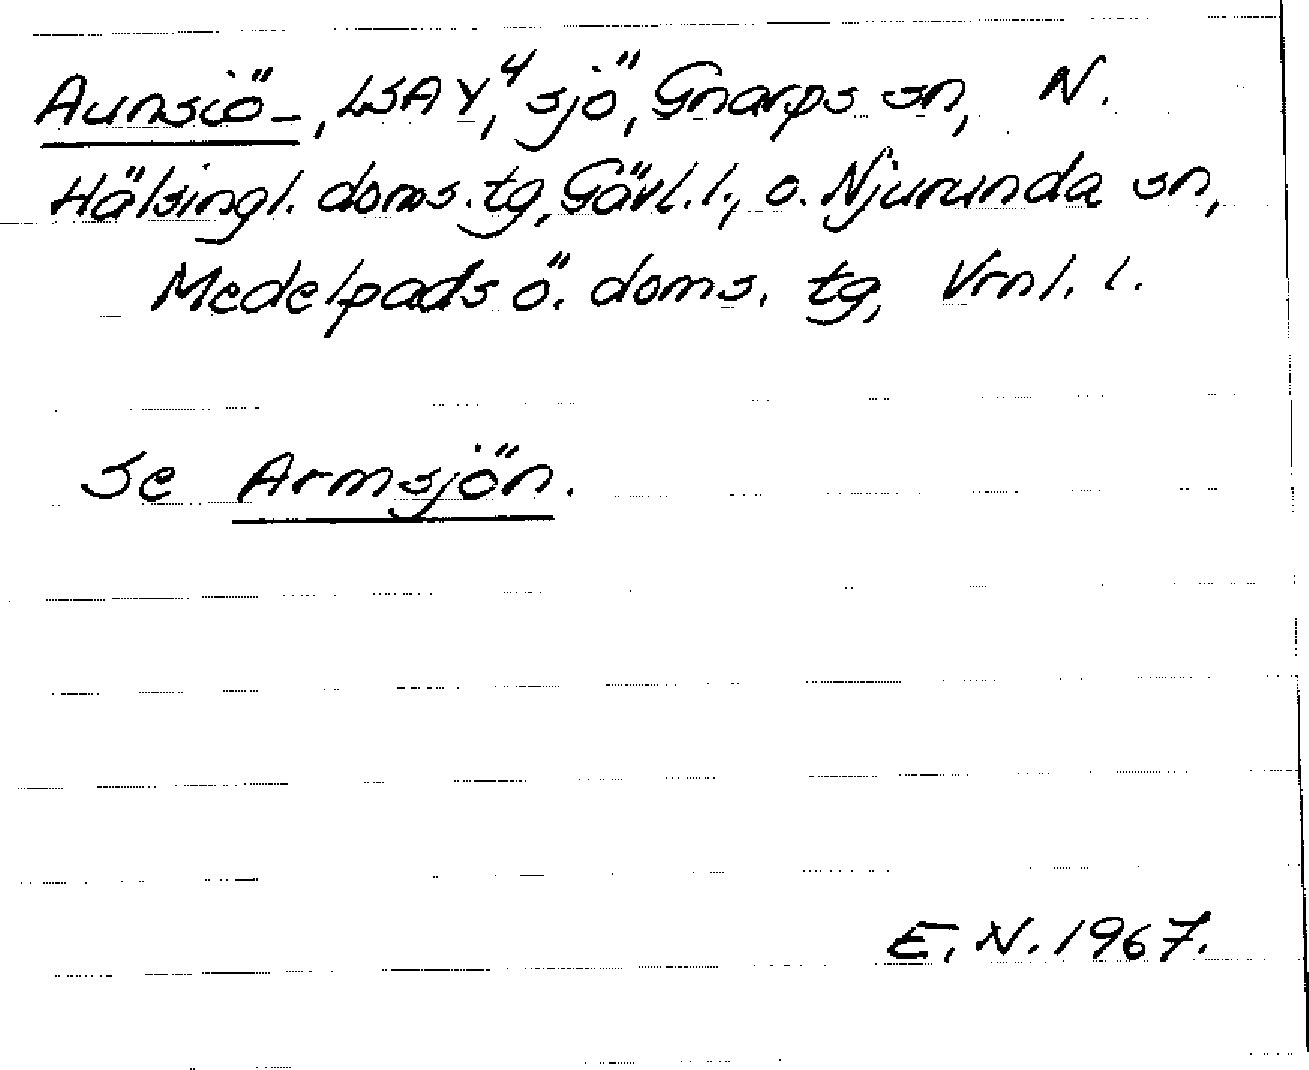 Aunsiö-, LSAY,⁴ sjö, Gnarps sn, N.
Hälsingl. doms. tg, Gävl. l., o. Njurunda sn,
Medelpads ö. doms. tg, Vrnl. l.
Se Armsjön.
E. N. 1967.